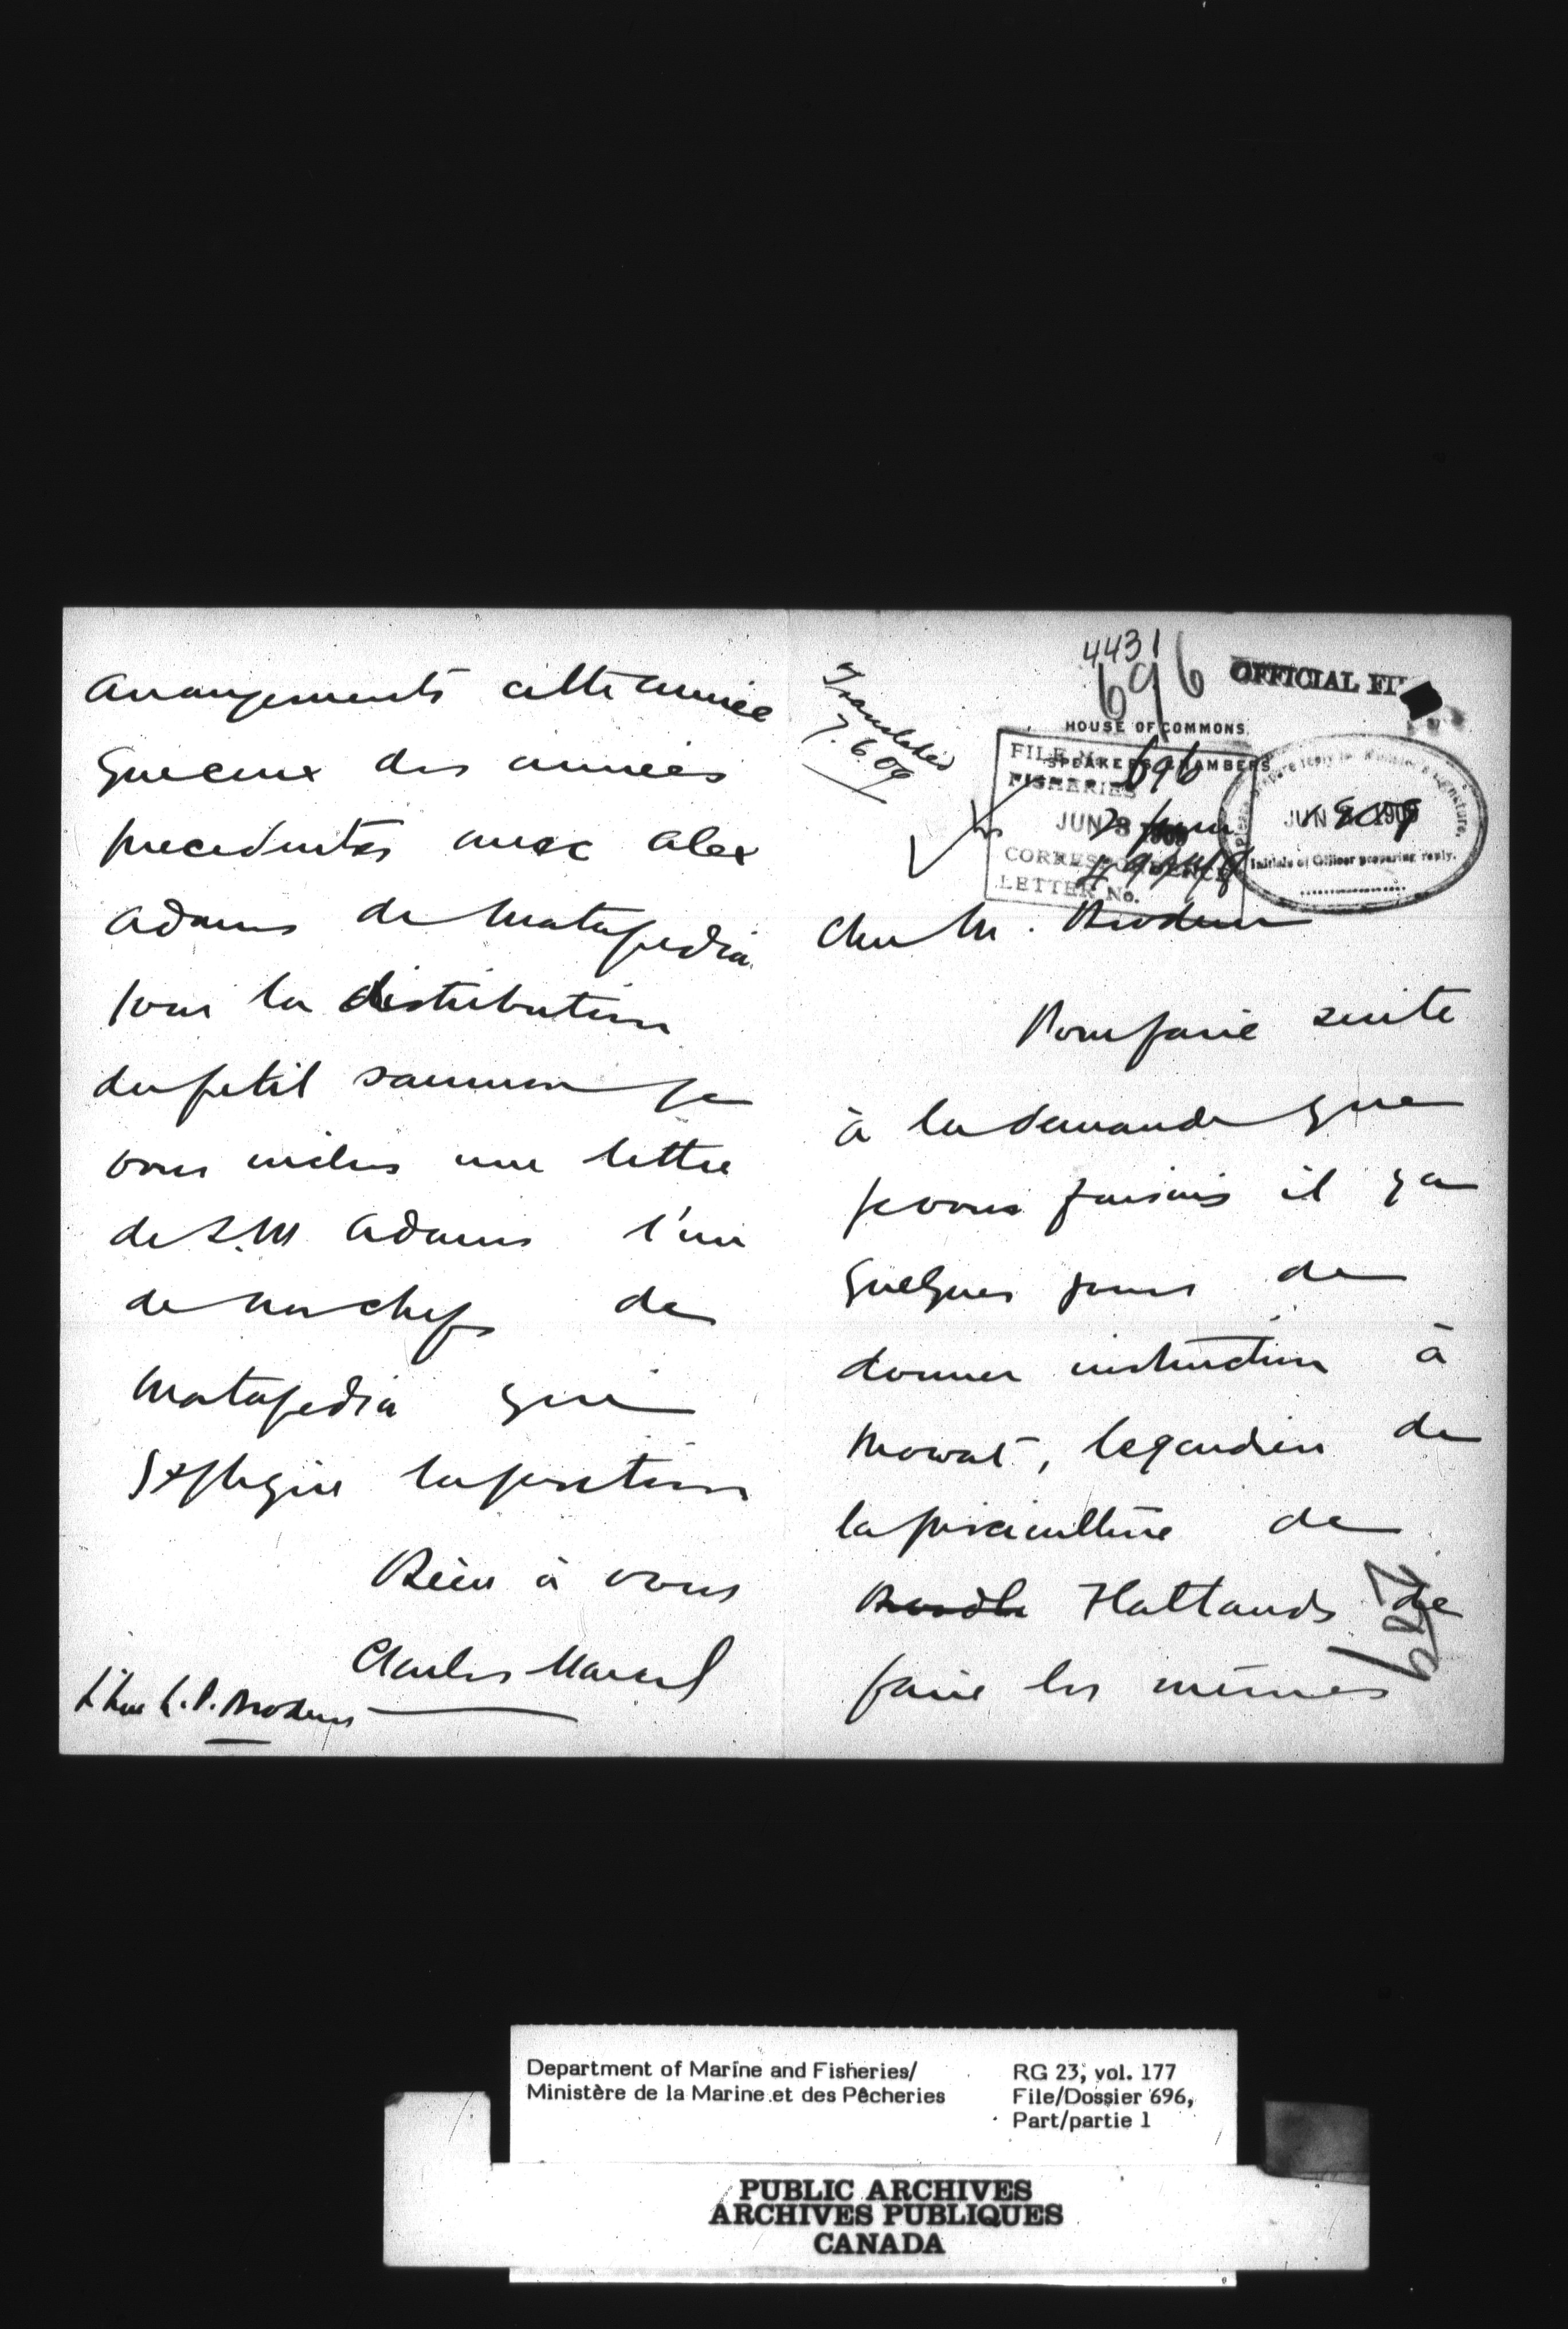 4431
696
OFFICIAL FI
Translated
7.6.09
HOUSE OF COMMONS
SPEAKERS CHAMBERS
FILE No. 696
FISHERIES
JUN 8 1909
CORRESPONDENCE
LETTER No.
JUN 1909
Initials of Officer preparing reply.
Cher M. Brodeur
Pour faire suite
à la demande que
je vous faisais il y a
quelques jours de
donner instruction à
Mowat, le gardien de
la pisciculture de
Flatlands de
faire les mêmes
arrangements cette année
que ceux des années
precedentes avec Alex
Adams de Matapedia
pour la distribution
du petit saumon je
vous inclus une lettre
de L.M Adams l'un
de nos chefs de
Matapedia qui
explique la position
Bien à vous
Charles Marcil
L'Hon L.P. Brodeur
Department of Marine and Fisheries/
Ministère de la Marine et des Pêcheries
RG 23, vol. 177
File/Dossier 696,
Part/partie 1
PUBLIC ARCHIVES
ARCHIVES PUBLIQUES
CANADA